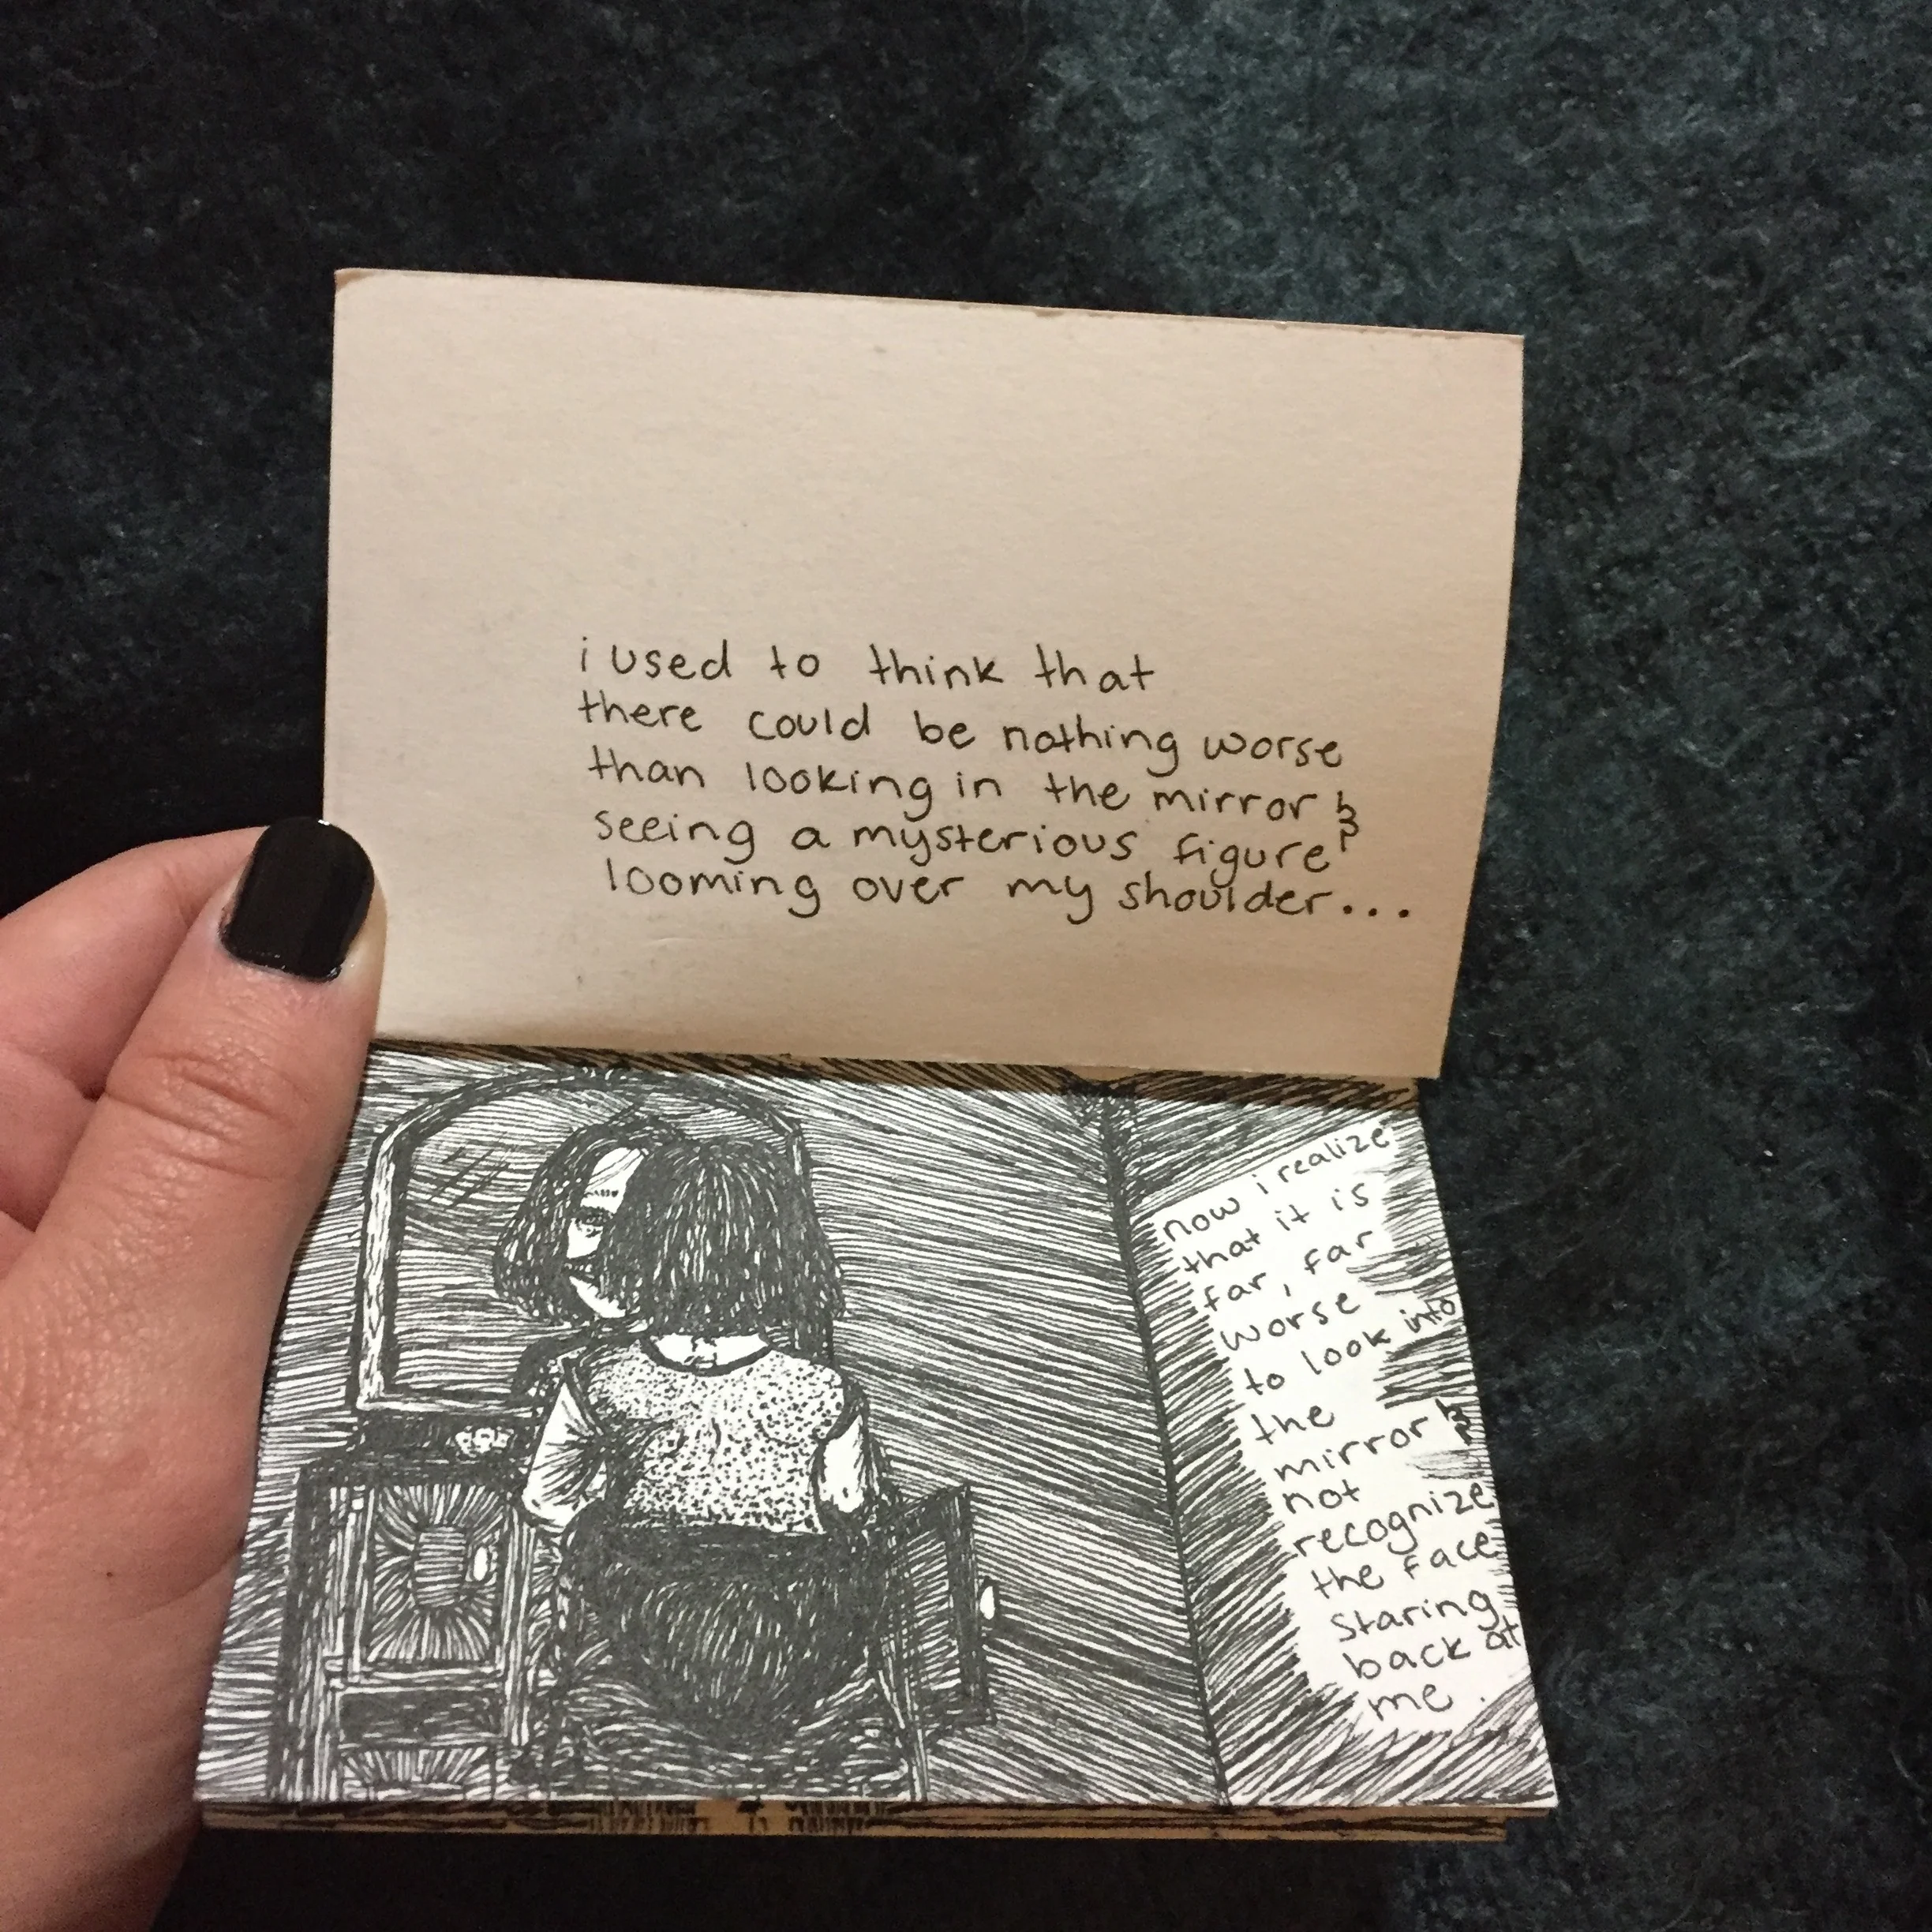 i used to think that
there could be nothing worse
than looking in the mirror &
seeing a mysterious figure
looming over my shoulder...
now i realize
that it is
far, far
worse
to look into
the
mirror &
not
recognize
the face
staring
back at
me.